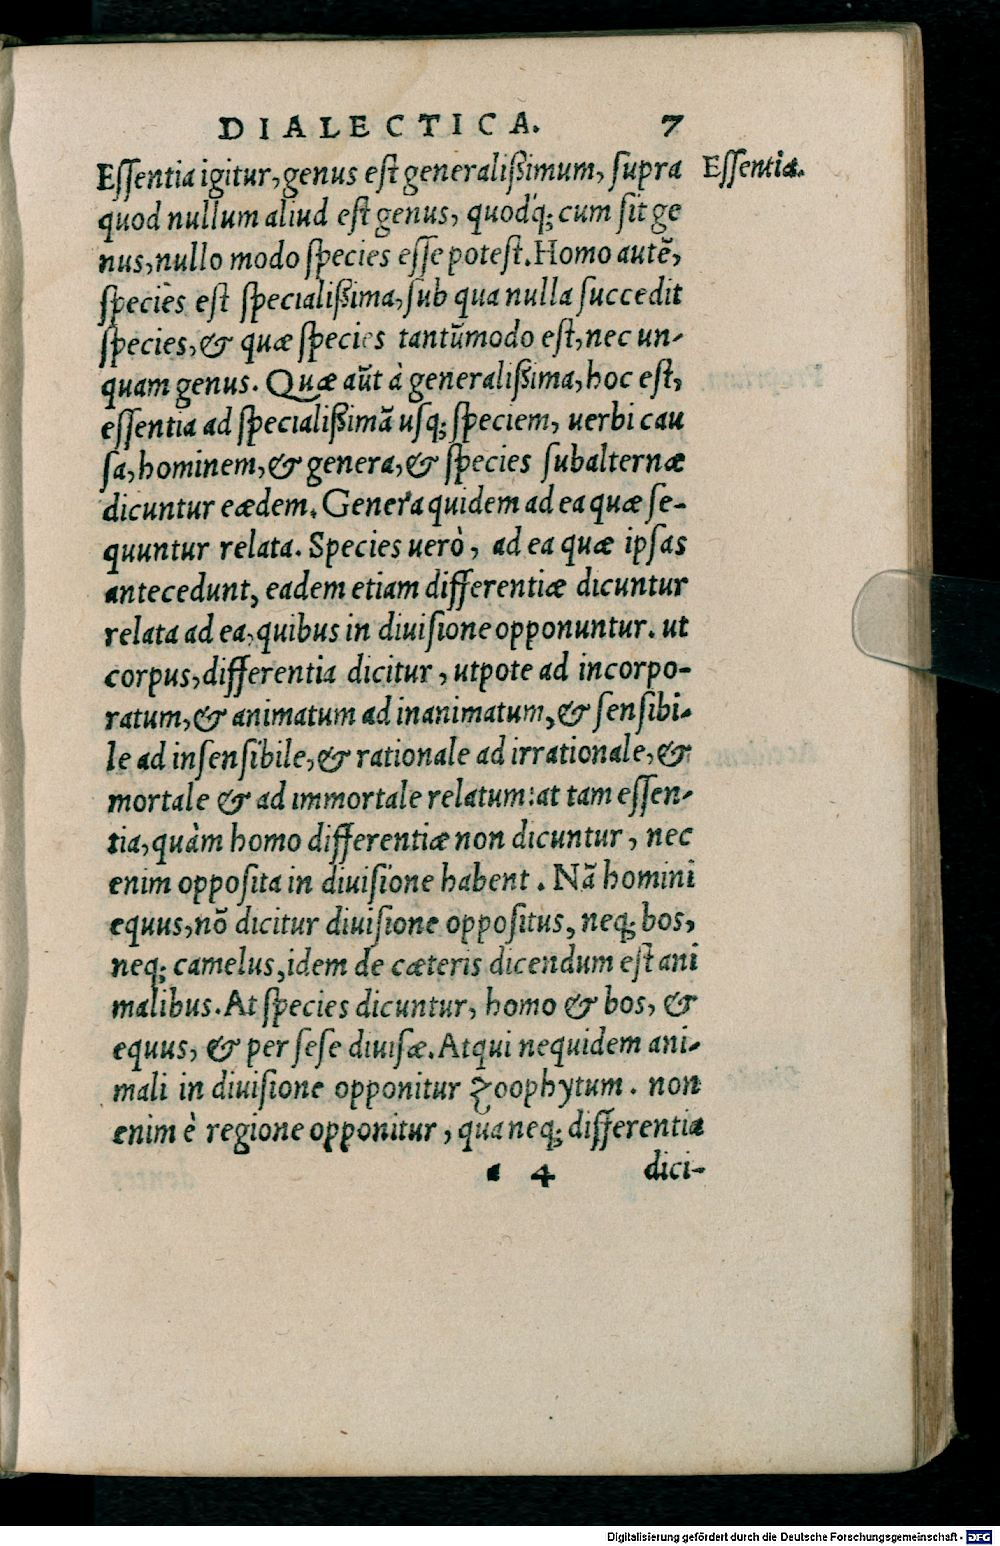 DIALECTICA. 7
Essentia igitur, genus est generalißimum, supra
Essentia.
quod nullum aliud est genus, quodq́; cum sit ge
nus, nullo modo species esse potest. Homo autẽ,
species est specialißima, sub qua nulla succedit
species, & quæ species tantũmodo est, nec un-
quam genus. Quæ aũt à generalißima, hoc est,
essentia ad specialißimã usq; speciem, uerbi cau
sa, hominem, & genera, & species subalternæ
dicuntur eædem. Genera quidem ad ea quæ se-
quuntur relata. Species uerò, ad ea quæ ipsas
antecedunt, eadem etiam differentiæ dicuntur
relata ad ea, quibus in diuisione opponuntur. ut
corpus, differentia dicitur, utpote ad incorpo-
ratum, & animatum ad inanimatum, & sensibi-
le ad insensibile, & rationale ad irrationale, &
mortale & ad immortale relatum: at tam essen-
tia, quàm homo differentiæ non dicuntur, nec
enim opposita in diuisione habent. Nã homini
equus, nõ dicitur diuisione oppositus, neq; bos,
neq; camelus, idem de cæteris dicendum est ani
malibus. At species dicuntur, homo & bos, &
equus, & per sese diuisæ. Atqui nequidem ani-
mali in diuisione opponitur zoophytum. non
enim è regione opponitur, qua neq; differentia
a 4 dici-
Digitalisierung gefördert durch die Deutsche Forschungsgemeinschaft - DFG